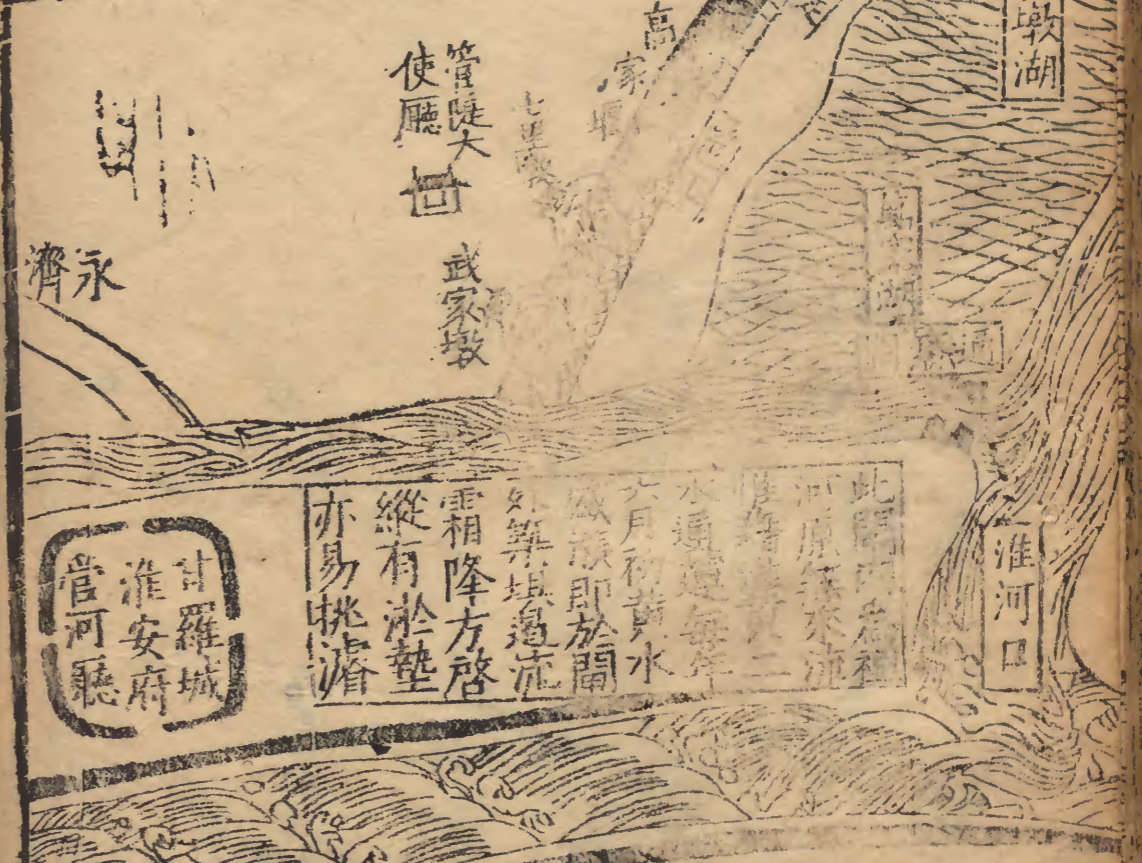 墩湖
淮河口
高家堰
管隄大
使廳
武家墩
永濟
此閘內為裡
河原無來流
惟藉淮黃二
水通運每年
六月初黃水
盛漲即於閘
外築垻遏流
霜降方啓
縱有淤墊
亦易挑濬
甘羅城
淮安府
管河廳